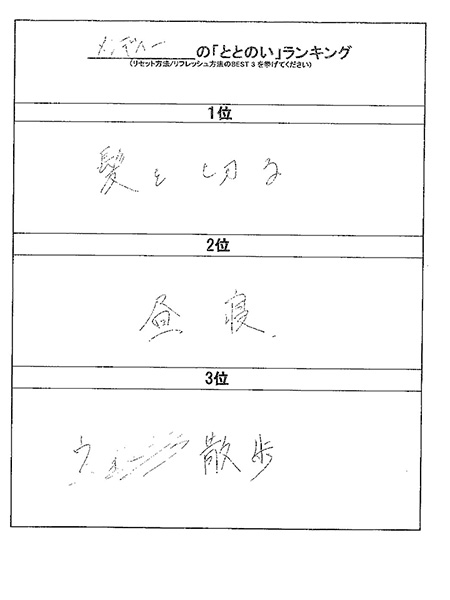 の「ととのい」ランキング
(リセット方法/リフレッシュ方法のBEST 3 を挙げてください)
1位
髪を切る
2位
昼寝.
3位
散歩